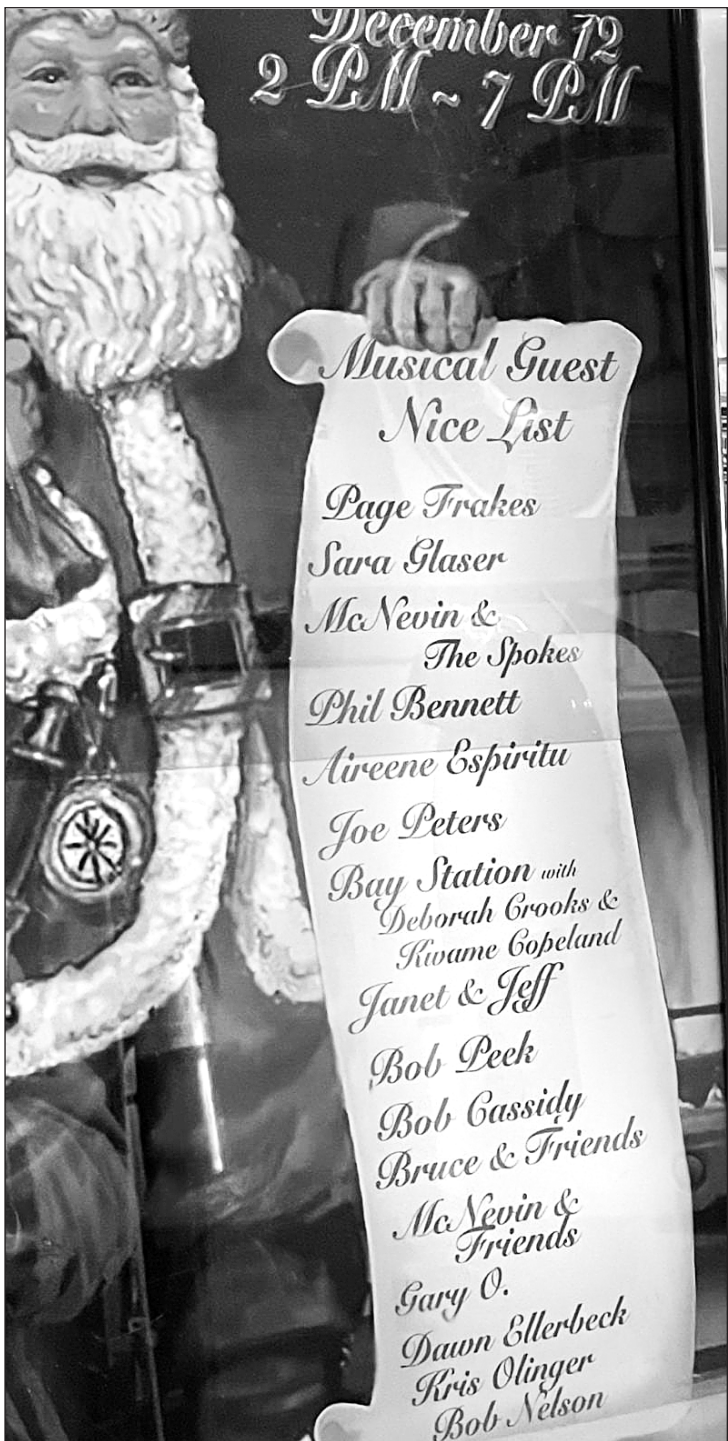 December 12
2 PM ~ 7 PM
Musical Guest
Nice List
Page Frakes
Sara Glaser
McNevin &
The Spokes
Phil Bennett
Aireene Espiritu
Joe Peters
Bay Station with
Deborah Crooks &
Kwame Copeland
Janet & Jeff
Bob Peek
Bob Cassidy
Bruce & Friends
McNevin &
Friends
Gary O.
Dawn Ellerbeck
Kris Olinger
Bob Nelson